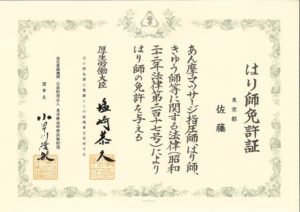 はり師免許証
東京都
佐藤
あん摩マッサージ指圧師、はり師、
きゆう師等に関する法律(昭和
二十二年法律第二百十七号)により
はり師の免許を与える
厚生労働大臣
塩崎恭久
理事長